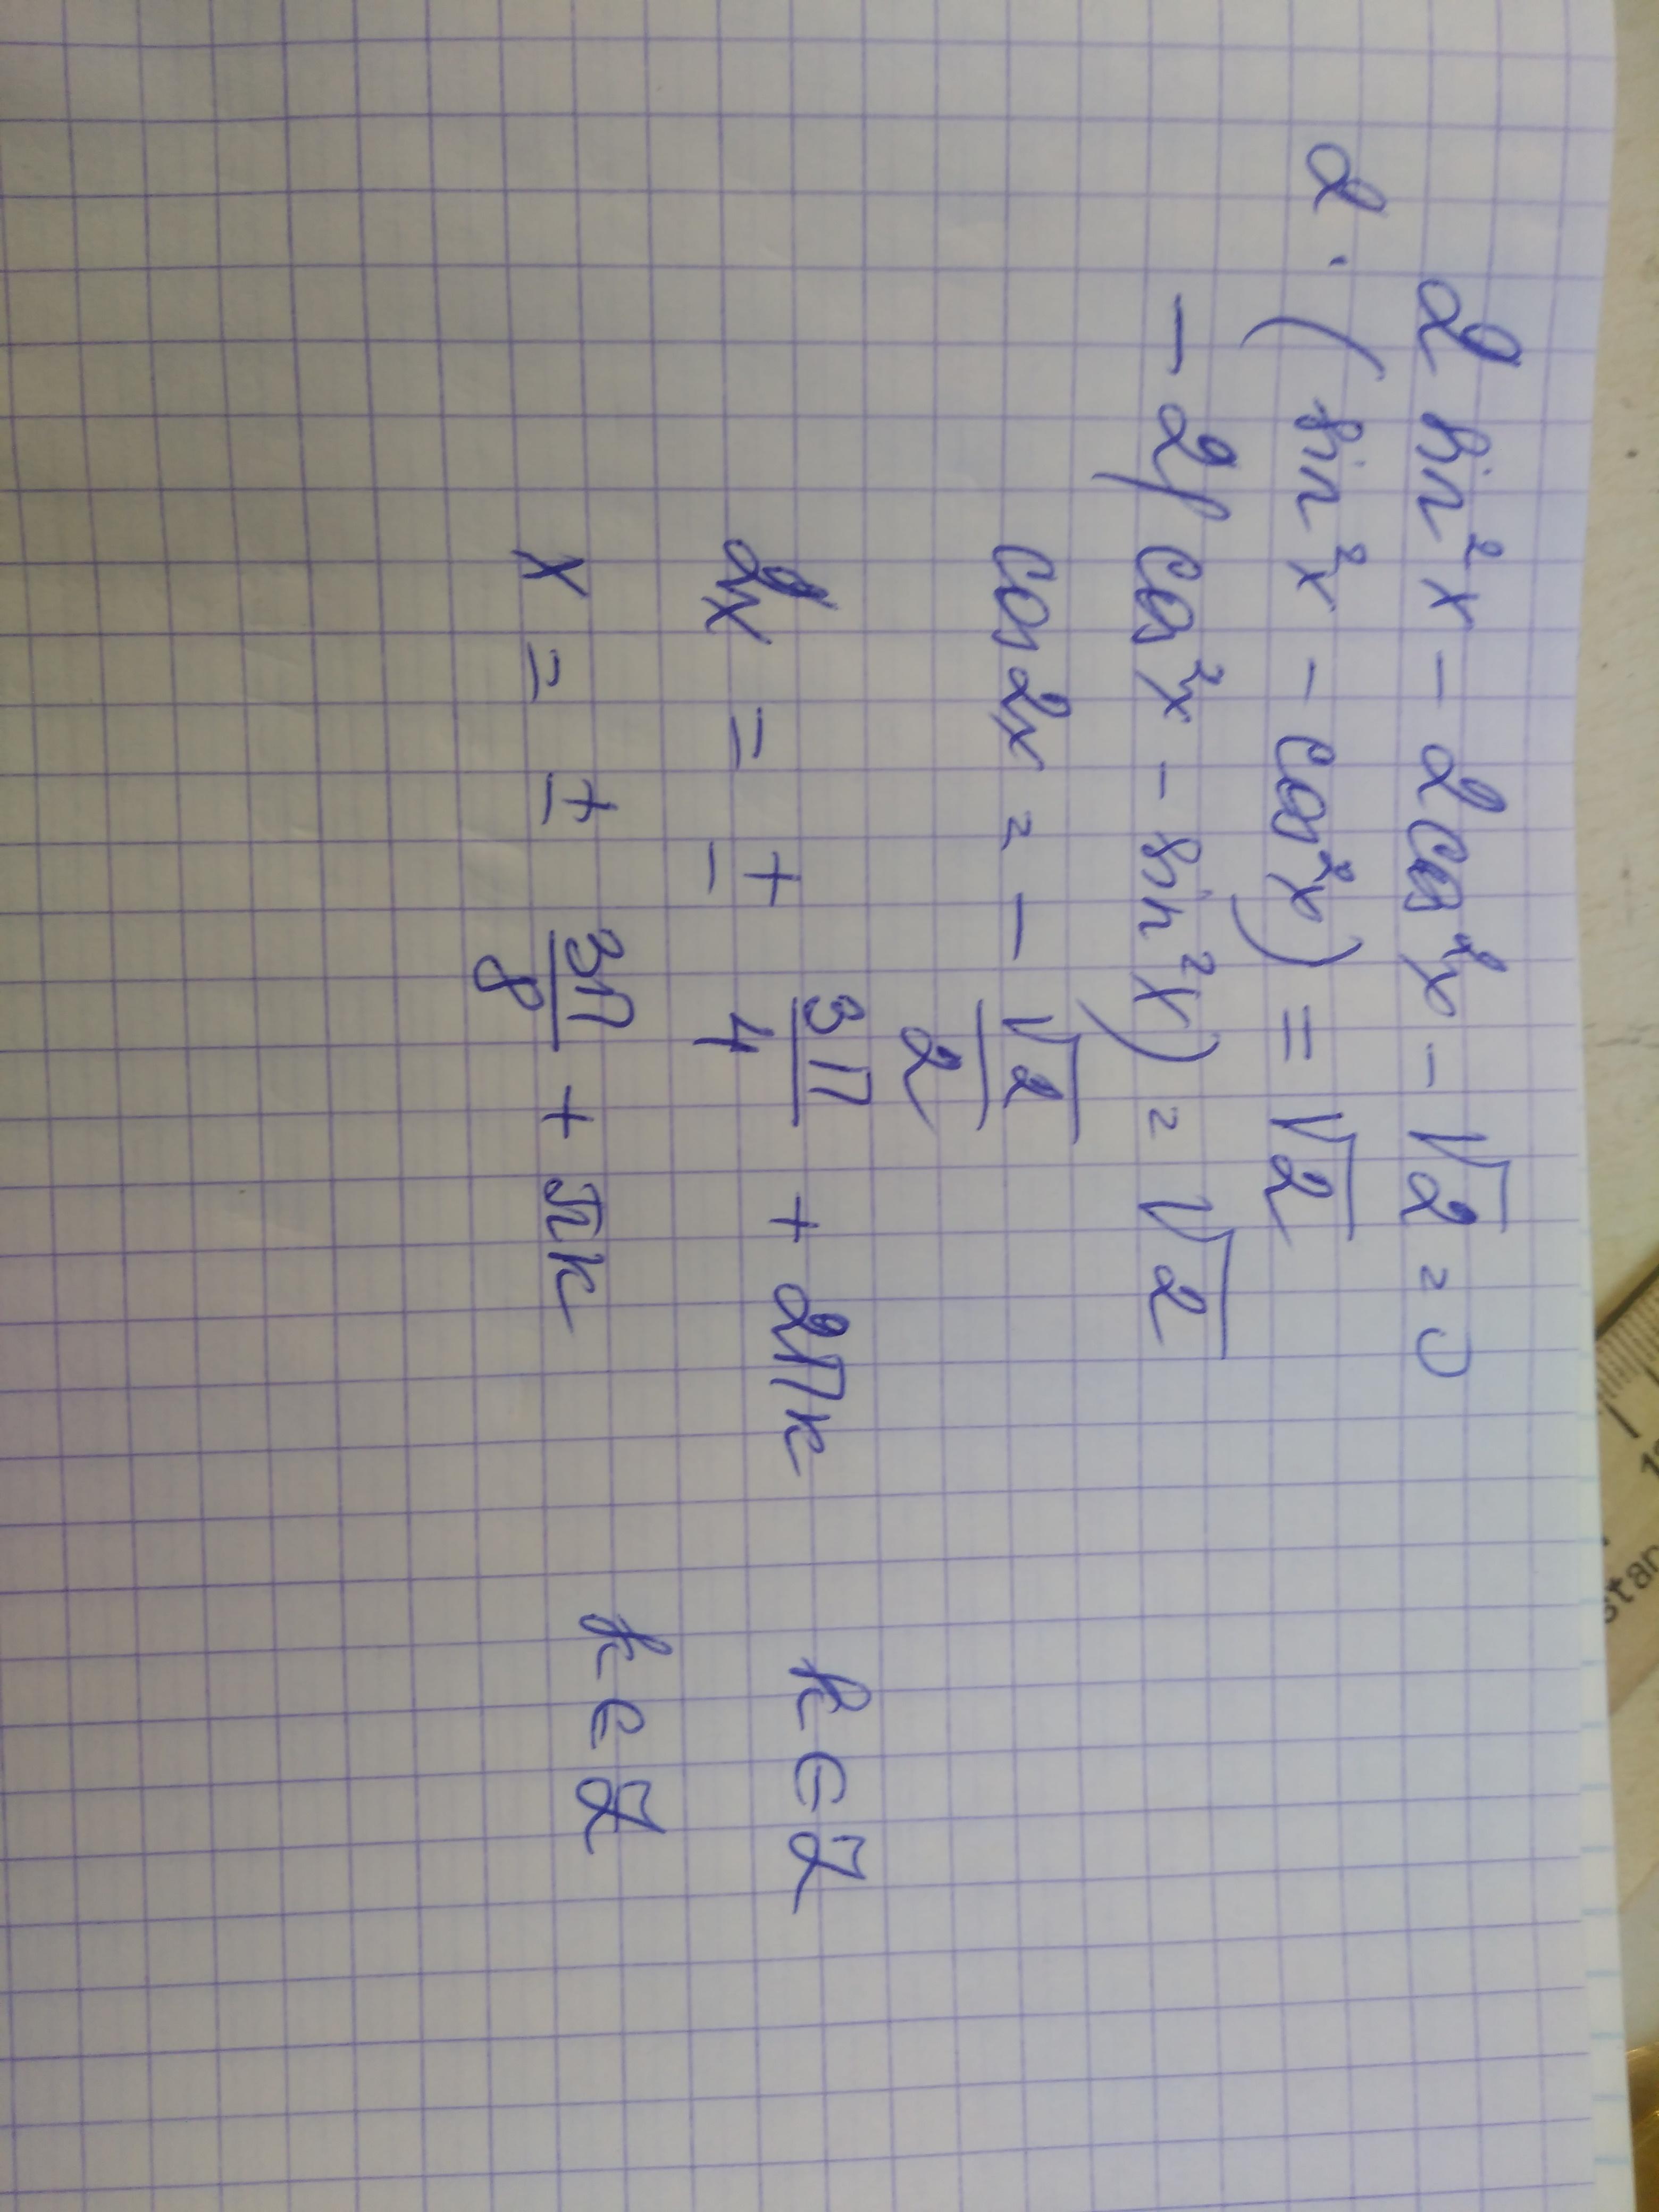 2 sin²x - 2cos²x - √2 = 0
2 · (sin²x - cos²x) = √2
- 2(cos²x - sin²x) = √2
cos2x = - √2/2
2x = ± 3π/4 + 2πk k ∈ Z
x = ± 3π/8 + πk k ∈ Z
stan